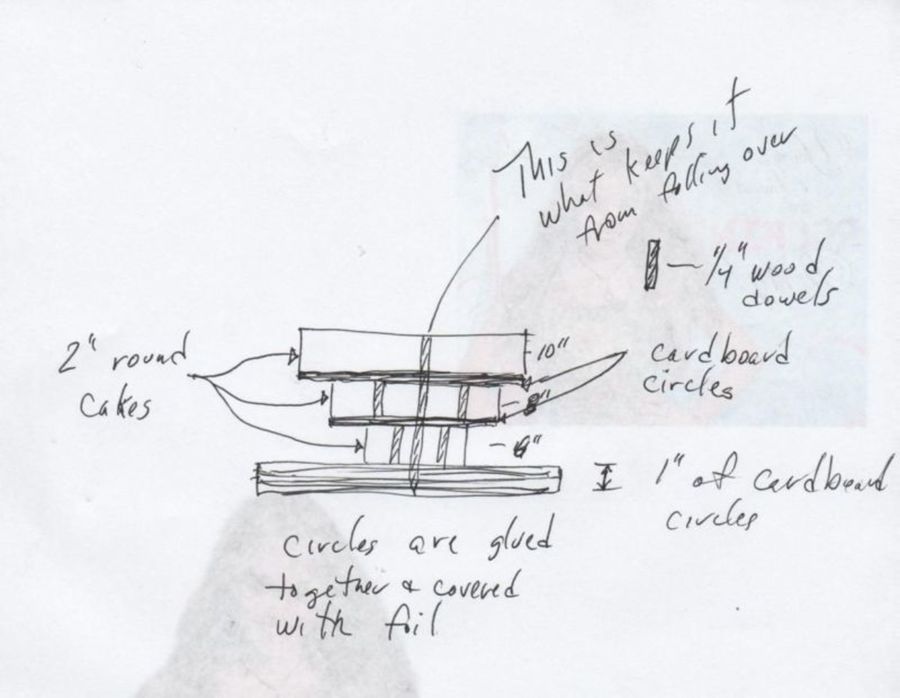 This is
what keeps it
from falling over
1/4" wood
dowels
2" round
cakes
10"
8"
6"
cardboard
circles
1" of cardboard
circles
circles are glued
together & covered
with foil